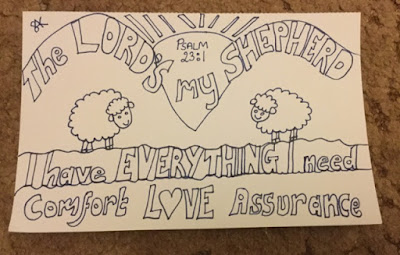 The LORD'S my SHEPHERD
PSALM
23:1
I have EVERYTHING I need
Comfort LOVE Assurance